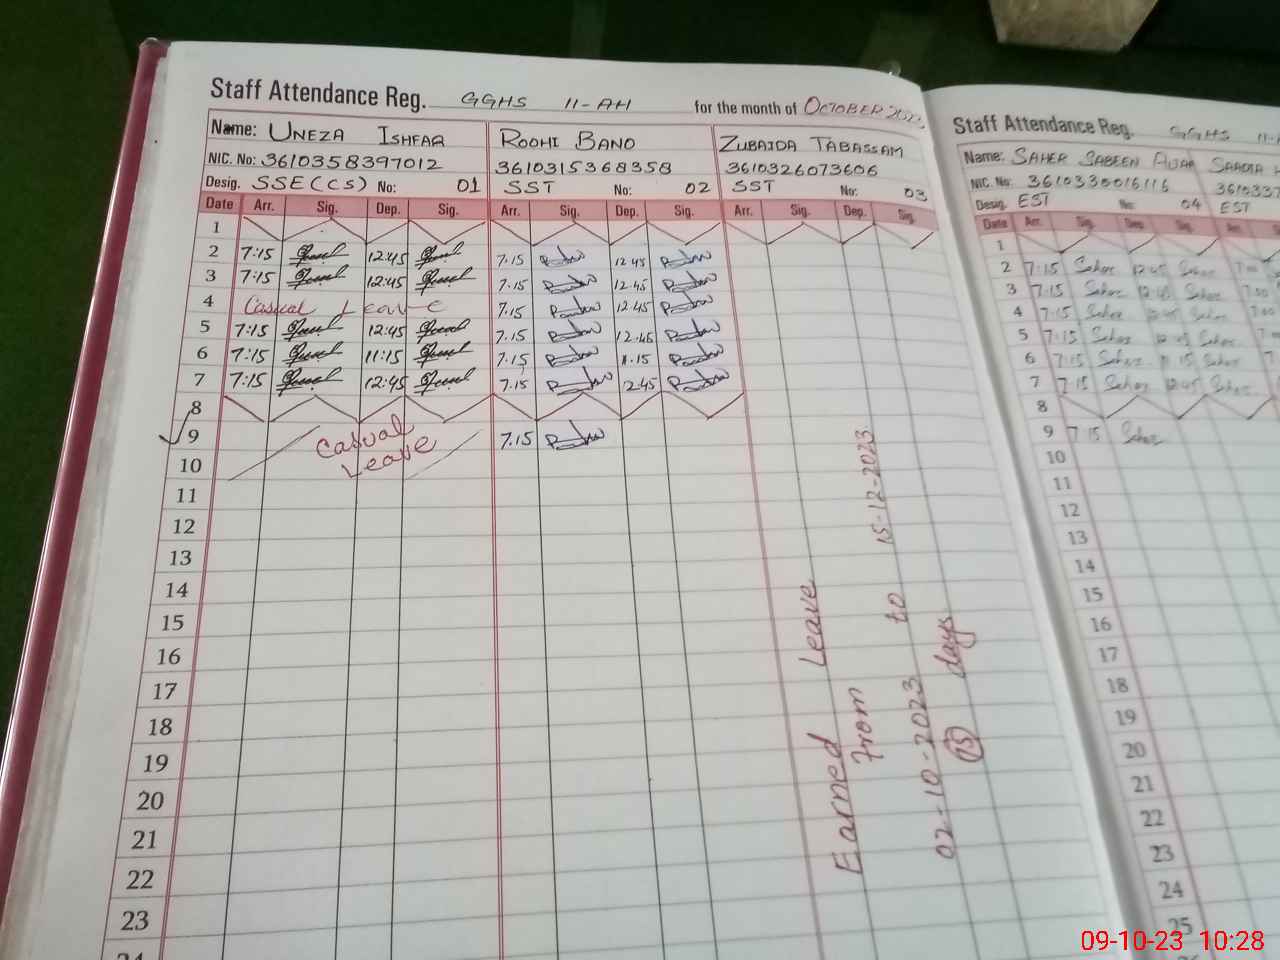 Staff Attendance Reg. GGHS 11-AH for the month of OCTOBER
Name: UNEZA ISHFAQ ROOHI BANO ZUBAIDA TABASSAM
NIC. No: 3610358397012 3610315368358 3610326073606
Desig. SSE(CS) No: 01 SST No: 02 SST No: 03
Date Arr. Sig. Dep. Sig. Arr. Sig. Dep. Sig. Arr. Sig. Dep. Sig.
1
2 7:15 12:45 7.15 12 45
3 7:15 12:45 7.15 12.45
4 Casual Leave 7.15 12.45
5 7:15 12:45 7.15 12.45
6 7:15 11:15 7.15 11.15
7 7:15 12:45 7.15 1245
8
9 Casual 7.15
10 Leave
11
12
13
14
15
16
17
18
19
20
21
22
23
24
Earned Leave
From
02-10-2023 to 15-12-2023
days
Staff Attendance Reg. GGHS
Name: SAHER SABEEN
NIC. No: 3610330016116
Desig. EST No: 04 EST
Date Arr. Sig. Dep Sig. Arr.
1
2 7:15 Saher 12:45 Saher 7:00
3 7:15 Saher 12:45 Saher 7:00
4 7:15 Saher 12:45 Saher 7:00
5 7:15 Saher 12:45 Saher
6 7:15 Saher 11:15 Saher
7 7:15 Saher 12:45 Saher
8
9 7:15 Saher
10
11
12
13
14
15
16
17
18
19
20
21
22
23
24
25
09-10-23 10:28